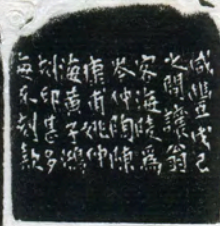 咸豐戊己
之間讓翁
客海陵爲
岑仲陶陳
康甫姚仲
海黃子鴻
刻印甚多
每不刻款